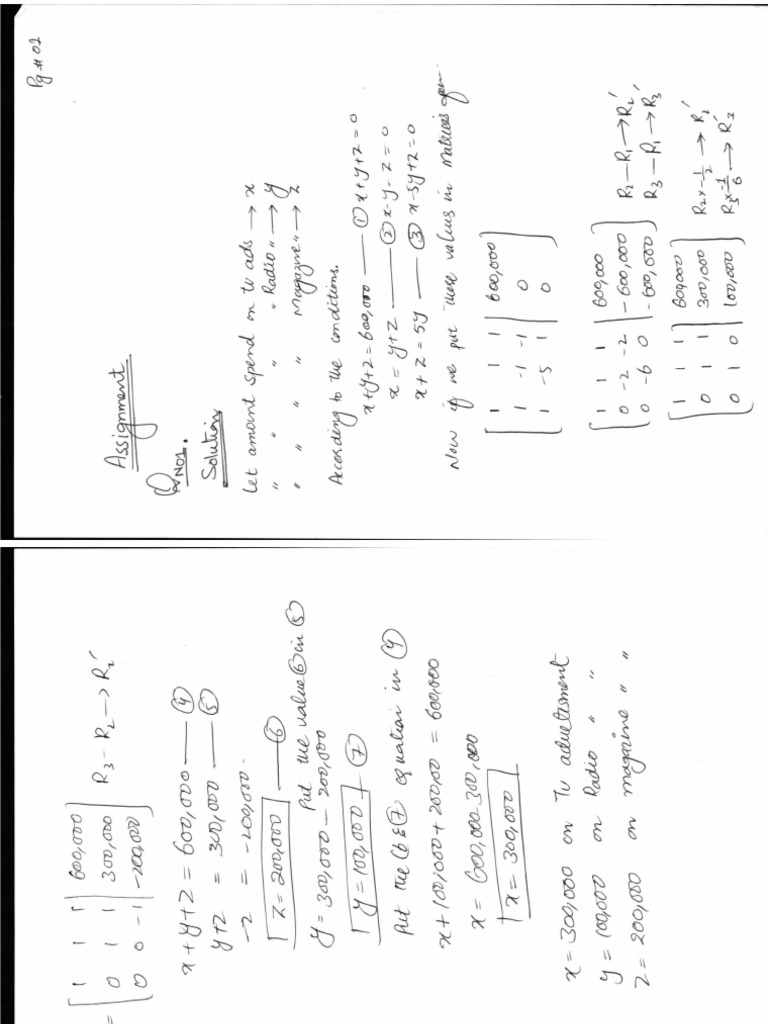 Pg # 02
Assignment
Q No1.
Solution
Let amount spend on tv ads → x
" " " " Radio " → y
" " " " Magazine " → z
According to the conditions.
x+y+z=600,000 — ① x+y+z=0
x = y+z — ② x-y-z=0
x+z=5y — ③ x-5y+z=0
Now if we put these values in Matrices
[1 1 1 | 600,000]
[1 -1 -1 | 0]
[1 -5 1 | 0]
[1 1 1 | 600,000]
[0 -2 -2 | -600,000] R2-R1→R2'
[0 -6 0 | -600,000] R3-R1→R3'
[1 1 1 | 600,000]
[0 1 1 | 300,000] R2×-1/2→R2'
[0 1 0 | 100,000] R3×-1/6→R'3
[1 1 1 | 600,000]
= [0 1 1 | 300,000] R3-R2→R2'
[0 0 -1 | -200,000]
x+y+z = 600,000 — ④
y+z = 300,000 — ⑤
-z = -200,000.
z=200,000 — ⑥
Put the value ⑥ in ⑤
y=300,000-200,000
y=100,000 — ⑦
Put the 6 & ⑦ equation in ④
x+100,000+200,00 = 600,000
x = 600,000-300,000
x = 300,000
x = 300,000 on Tv advertisment
y = 100,000 on Radio " "
z = 200,000 on magazine " "